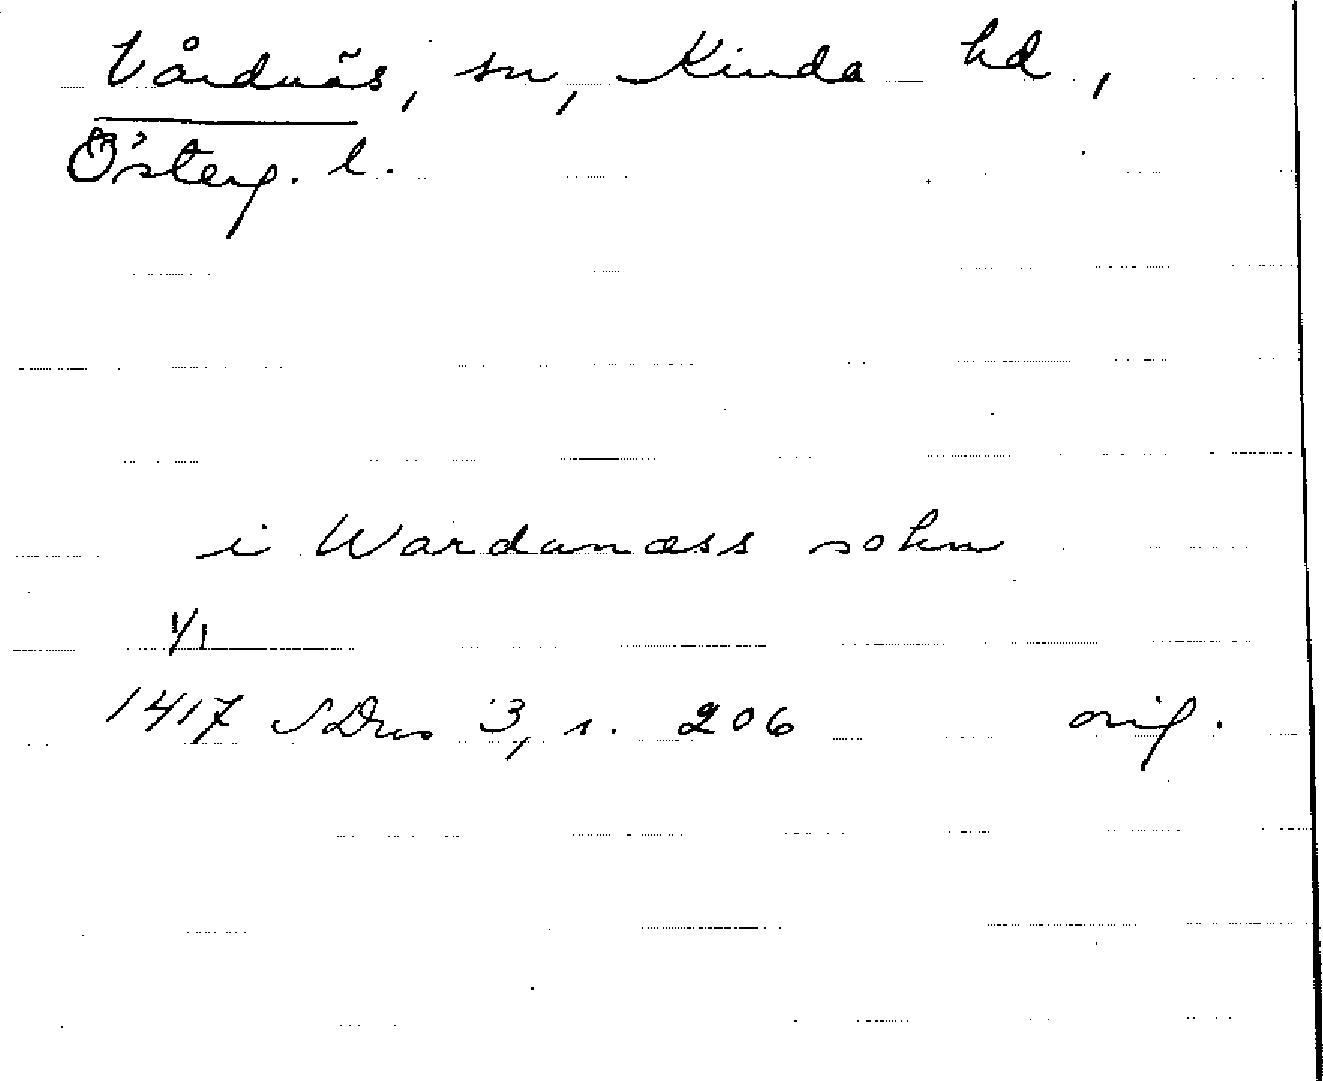 Vårdnäs, sn, Kinda hd,
Österg. l.
i Wardanæss sokn
1/1
1417 SDns 3, s. 206 orig.